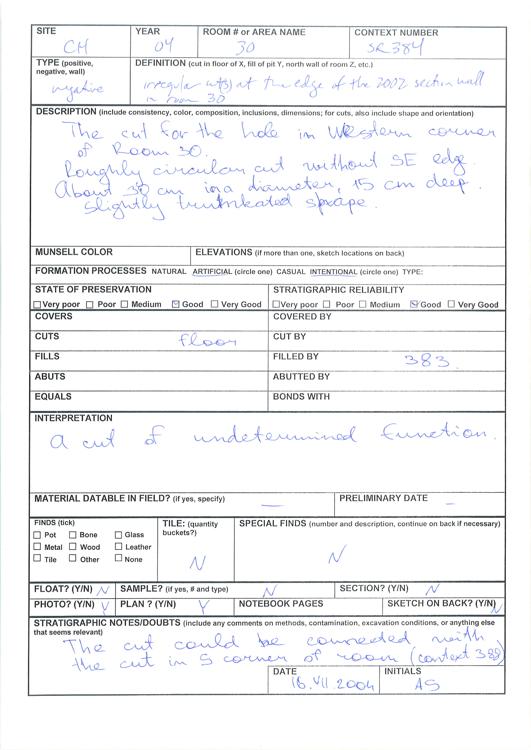 SITE CH YEAR 04 ROOM # or AREA NAME 30 CONTEXT NUMBER SR384
TYPE (positive, negative, wall) negative
DEFINITION (cut in floor of X, fill of pit Y, north wall of room Z, etc.)
irregular cut(s) at the edge of the 2002 section wall
in room 30
DESCRIPTION (include consistency, color, composition, inclusions, dimensions; for cuts, also include shape and orientation)
The cut for the hole in Western corner
of Room 30.
Roughly circular cut without SE edge.
About 30 cm in a diameter, 15 cm deep.
Slightly
MUNSELL COLOR ELEVATIONS (if more than one, sketch locations on back)
FORMATION PROCESSES NATURAL ARTIFICIAL (circle one) CASUAL INTENTIONAL (circle one) TYPE:
STATE OF PRESERVATION STRATIGRAPHIC RELIABILITY
Very poor Poor Medium Good Very Good Very poor Poor Medium Good Very Good
COVERS COVERED BY
CUTS floor CUT BY
FILLS FILLED BY 383
ABUTS ABUTTED BY
EQUALS BONDS WITH
INTERPRETATION
A cut of undetermined function.
MATERIAL DATABLE IN FIELD? (if yes, specify) — PRELIMINARY DATE —
FINDS (tick) TILE: (quantity buckets?) N SPECIAL FINDS (number and description, continue on back if necessary) N
Pot Bone Glass
Metal Wood Leather
Tile Other None
FLOAT? (Y/N) N SAMPLE? (if yes, # and type) N SECTION? (Y/N) N
PHOTO? (Y/N) Y PLAN ? (Y/N) Y NOTEBOOK PAGES SKETCH ON BACK? (Y/N) N
STRATIGRAPHIC NOTES/DOUBTS (include any comments on methods, contamination, excavation conditions, or anything else
that seems relevant)
The cut could be connected with
the cut in S corner of room (context 388)
DATE 16.VII.2004 INITIALS AS